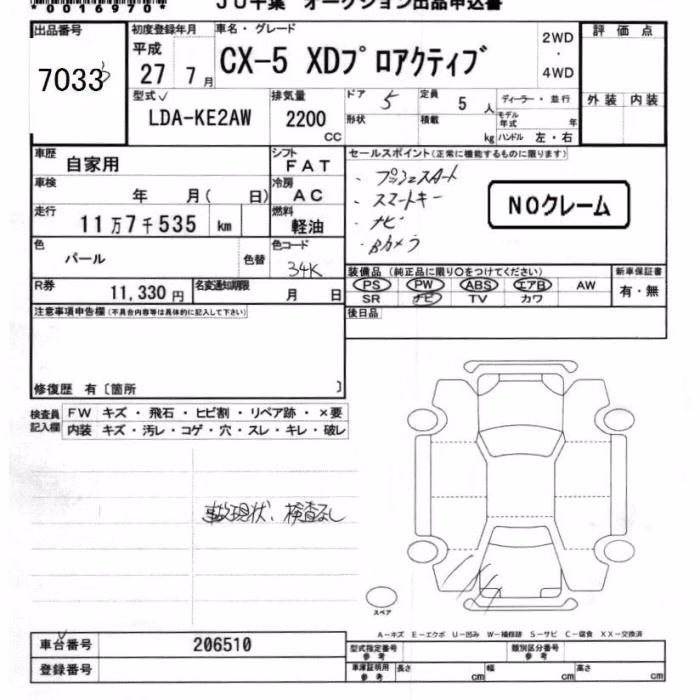 *00416970*
JU千葉 オークション出品申込書
出品番号
7033
初度登録年月
平成
27 7月
車名・グレード
CX-5 XDプロアクティブ
2WD
・
4WD
評価点
外装 内装
型式
LDA-KE2AW
排気量
2200
CC
ドア 5
定員 5 人
ディーラー・並行
形状
積載 kg
モデル年式 年
ハンドル 左・右
車歴
自家用
シフト
FAT
車検
年 月( 日)
冷房
AC
走行
11万7千535 km
燃料
軽油
色
パール
色替
色コード
34K
R券
11,330 円
名変通知期限
月 日
セールスポイント(正常に機能するものに限ります)
・プッシュスタート
・スマートキー
・ナビ
・Bカメラ
NOクレーム
装備品(純正品に限り○をつけてください)
PS PW ABS エアB AW
SR ナビ TV カワ
新車保証書
有・無
後日品
注意事項申告欄(不具合内容等は具体的に記入して下さい)
修復歴 有〔箇所 〕
検査員記入欄
FW キズ・飛石・ヒビ割・リペア跡・×要
内装 キズ・汚レ・コゲ・穴・スレ・キレ・破レ
事故現状、検査なし
スペア
A-キズ E-エクボ U-凹み W-補修跡 S-サビ C-腐食 XX-交換済
車台番号
206510
登録番号
型式指定番号
参考
類別区分番号
参考
車庫証明用
参考
長さ cm
幅 cm
高さ cm